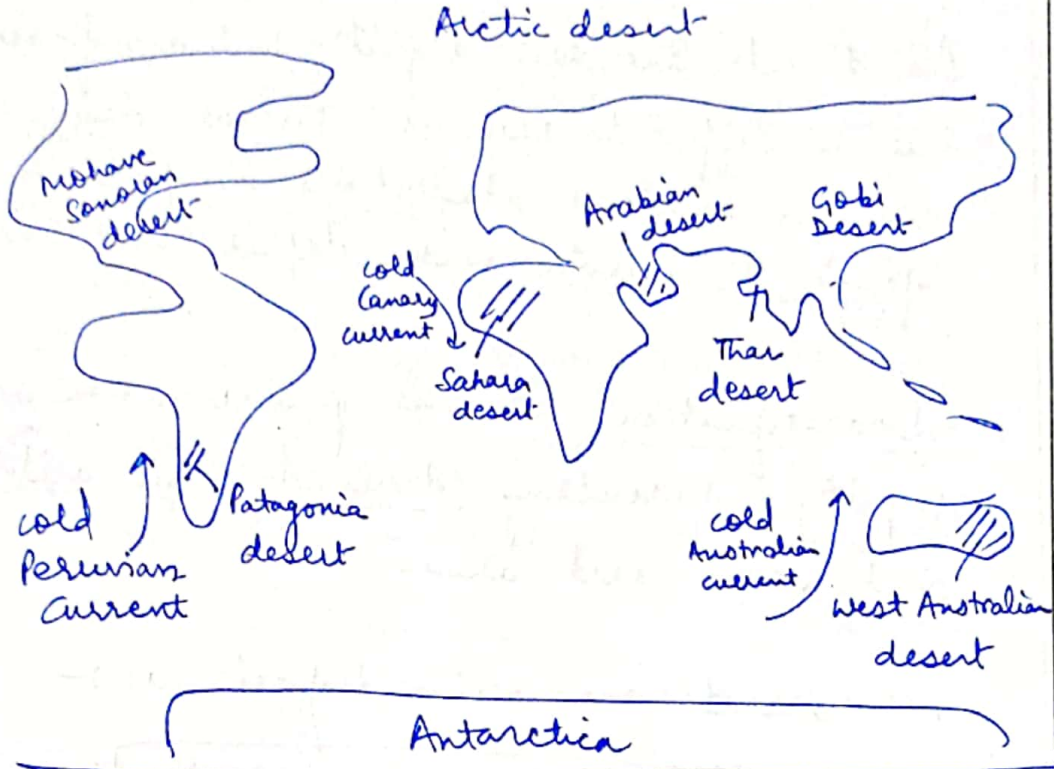 Arctic desert
Mohave
Sonoran
desert
Arabian
desert
Gobi
Desert
cold
Canary
current
Sahara
desert
Thar
desert
cold
Peruvian
Current
Patagonia
desert
cold
Australian
current
West Australian
desert
Antarctica